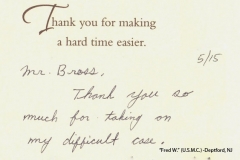 Thank you for making
a hard time easier.
5/15
Mr. Bross,
Thank you so
much for taking on
my difficult case.
"Fred W." (U.S.M.C.) -Deptford, NJ